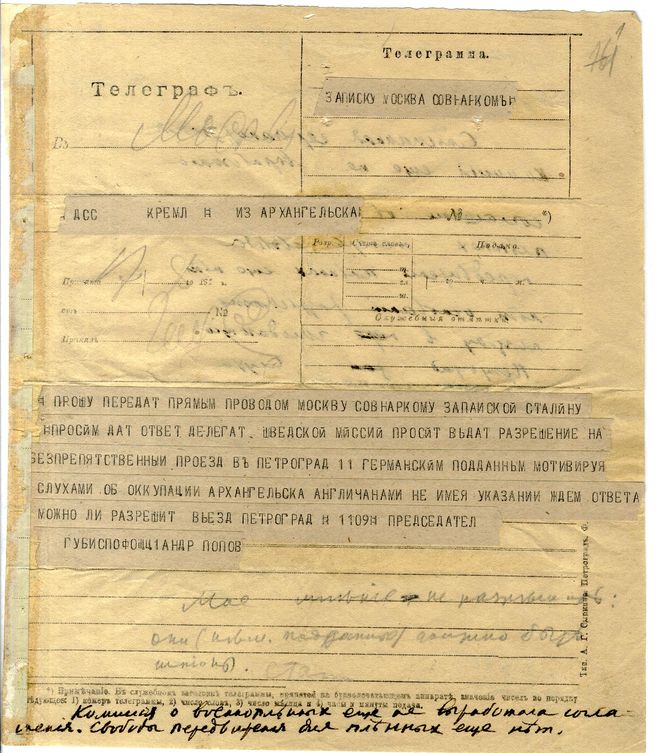 761
Телеграмма.
Телеграфъ.
ЗАПИСКУ МОСКВА СОВНАРКОМЪН
Въ
АДСС КРЕМЛ Н ИЗ АРХАНГЕЛЬСКА
№ *)
Разр. Счетъ словъ. Подача.
Принята 191 г.
ч. м.
отъ №
Служебныя отмѣтки
Принялъ
Н ПРОШУ ПЕРЕДАТ ПРЯМЫМ ПРОВОДОМ МОСКВУ СОВНАРКОМУ ЗАПАИСКОЙ СТАЛЙНУ
ВПРОСЙМ ДАТ ОТВЕТ ДЕЛЕГАТ. ШВЕДСКОЙ МЙССИЙ ПРОСЙТ ВЫДАТ РАЗРЕШЕНИЕ НА
БЕЗПРЕПЯТСТВЕННЫЙ ПРОЕЗД ВЪ ПЕТРОГРАД 11 ГЕРМАНСКЙМ ПОДДАННЫМ МОТИВИРУЯ
СЛУХАМИ ОБ ОККУПАЦИИ АРХАНГЕЛЬСКА АНГЛИЧАНАМИ НЕ ИМЕЯ УКАЗАНИИ ЖДЕМ ОТВЕТА
МОЖНО ЛИ РАЗРЕШИТ ВЬЕЗД ПЕТРОГРАД Н 1109Н ПРЕДСЕДАТЕЛ
ГУБИСПОФОЩ1АНДР ПОПОВ
Мое мнѣніе не разрешить:
они (нѣм. подданные) должно быть
шпіоны.
*) Примѣчаніе. Въ служебномъ заголовкѣ телеграммы, принятой на буквопечатающемъ аппаратѣ, значенія чиселъ по порядку
слѣдующее: 1) номеръ телеграммы, 2) число словъ, 3) число мѣсяца и 4) часы и минуты подачи.
Комиссия о военнопленных еще не выработала согла-
шения. Свободы передвижения для пленных еще нѣт.
Тип. А. Г. Сыркина Петроградъ. Ф.